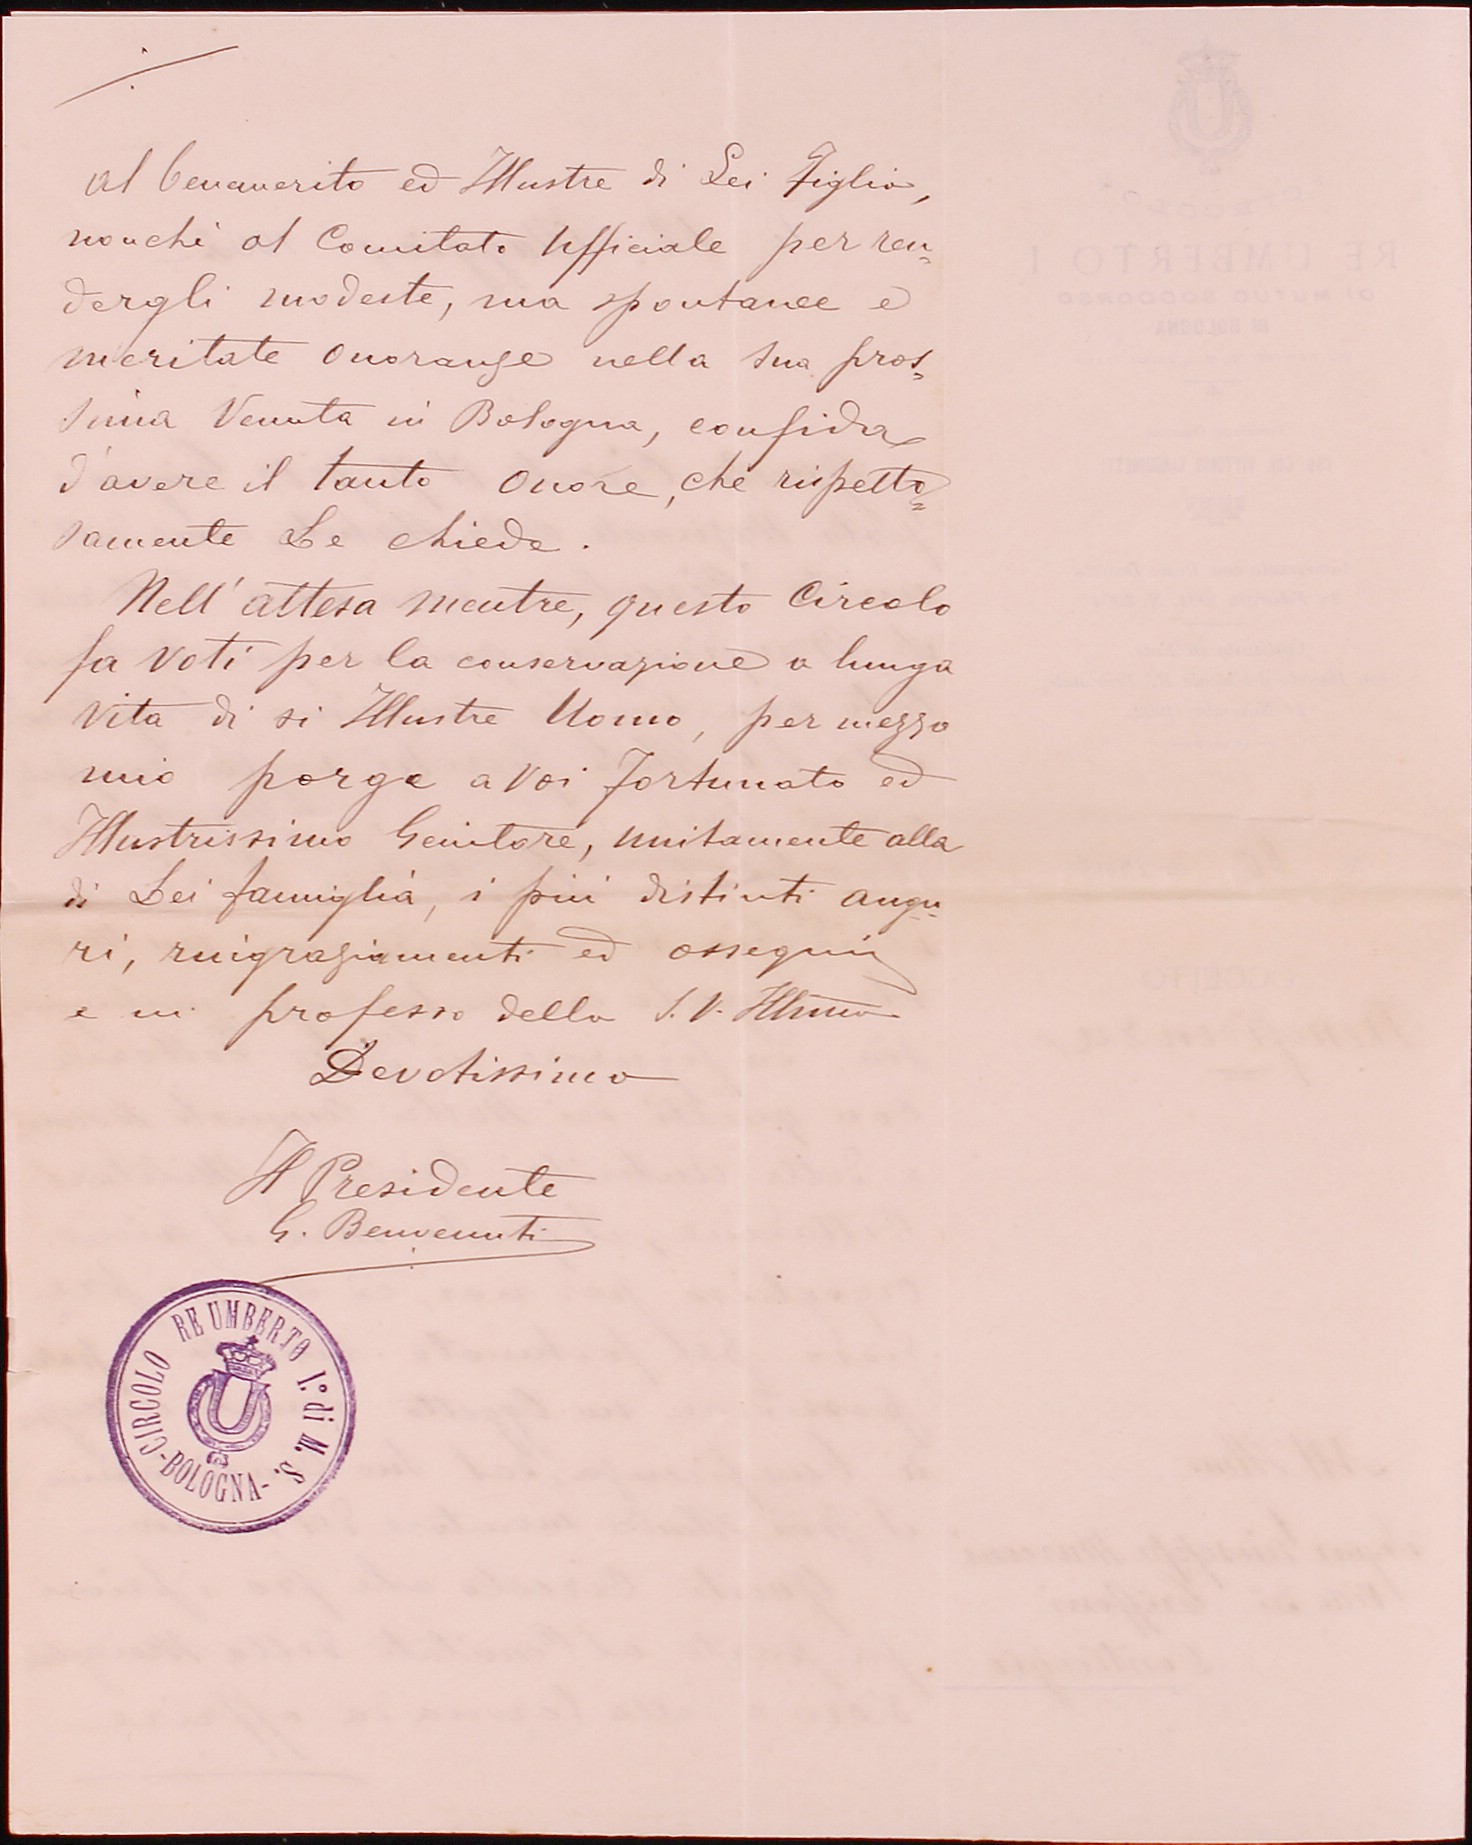 al benemerito ed Illustre di Lei Figlio,
nonchè al Comitato Ufficiale per ren=
dergli modeste, ma spontanee e
meritate onoranze nella sua pros=
sima Venuta in Bologna, confida
d'avere il tanto onore, che rispetto=
samente Le chiede.
Nell'attesa mentre, questo Circolo
fa Voti per la conservazione a lunga
vita di si Illustre Uomo, per mezzo
mio porge a Voi Fortunato ed
Illustrissimo Genitore, unitamente alla
di Lei famiglia, i più distinti augu=
ri, ringraziamenti ed ossequi
e mi professo della S.V. Illma
Devotissimo
Il Presidente
G. Benvenuti
CIRCOLO RE UMBERTO I.° di M. S.
-BOLOGNA-